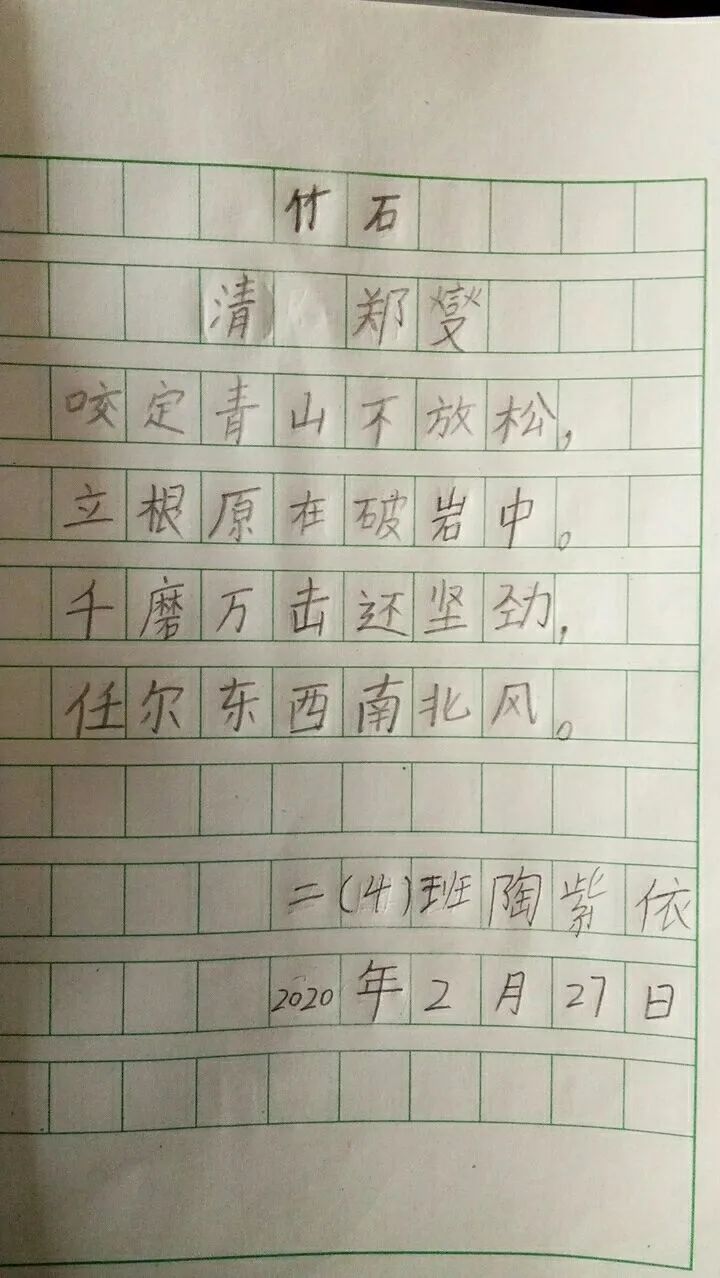 竹石
清 郑燮
咬定青山不放松，
立根原在破岩中。
千磨万击还坚劲，
任尔东西南北风。
二(4)班陶紫依
2020年2月27日